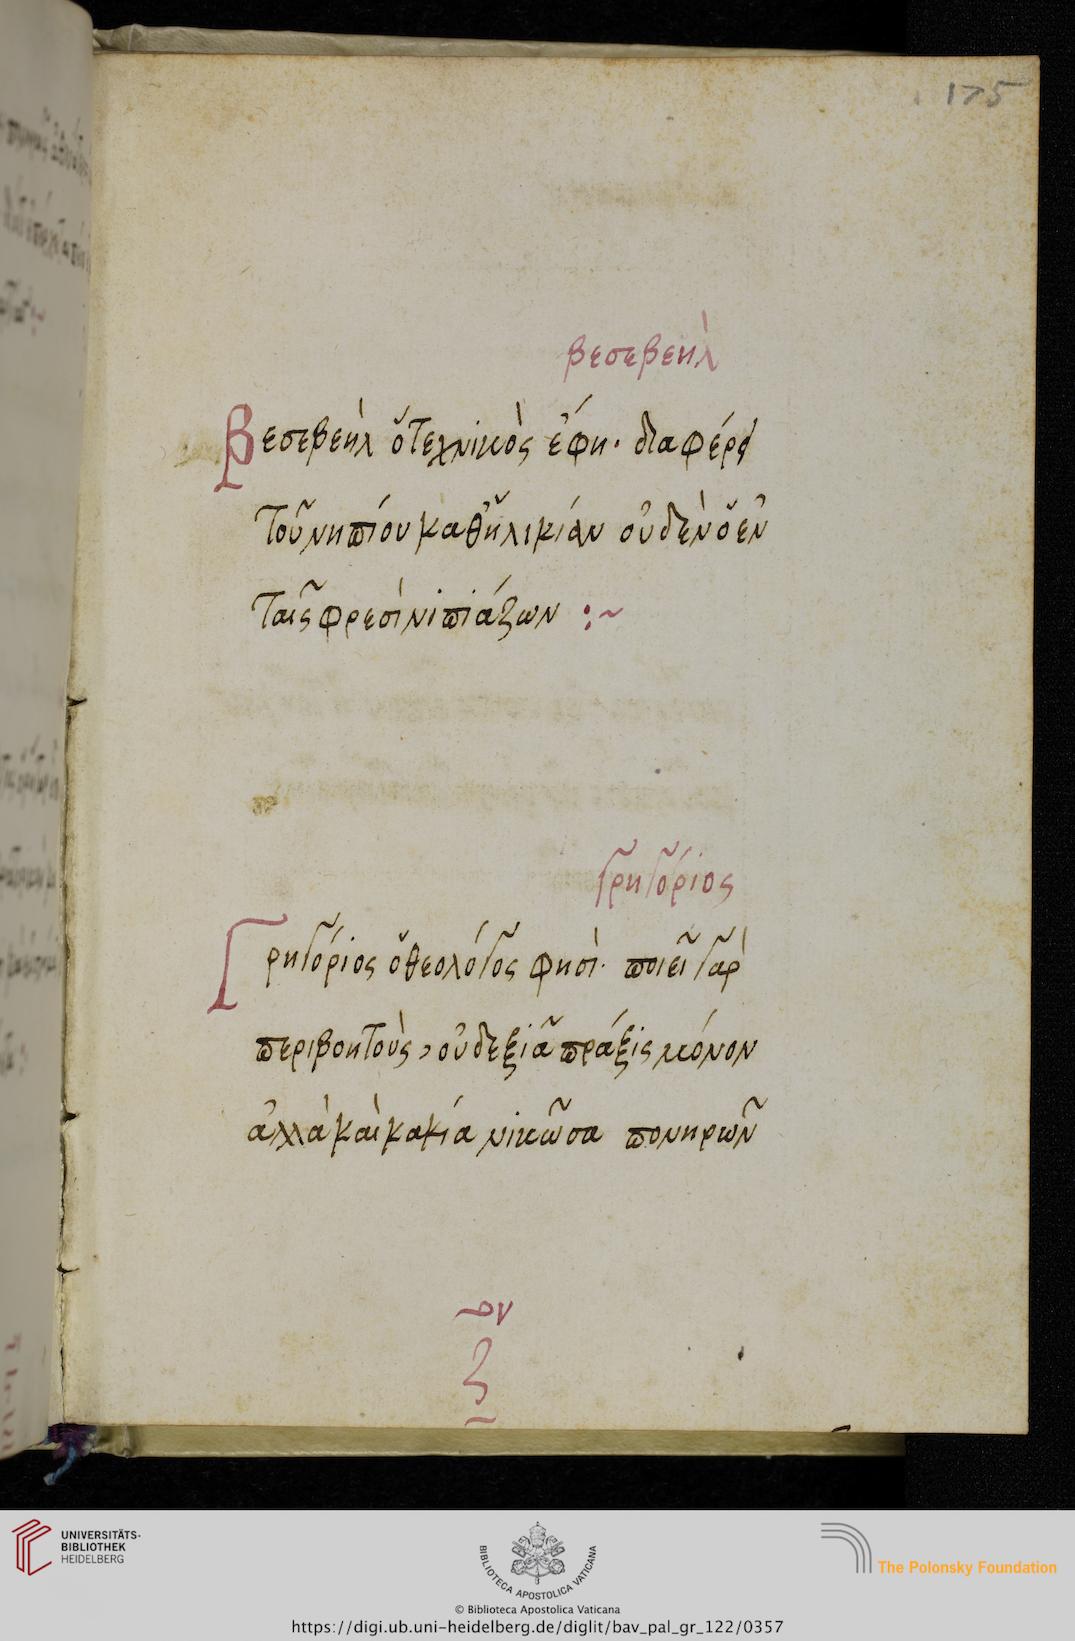 175
βεσεβεὴλ
Βεσεβεὴλ ὁ τεχνικὸς ἔφη· διαφέρει
τοῦ νηπίου καθ' ἡλικίαν οὐδὲν ὁ ἐν
ταῖς φρεσὶ νιπιάζων :~
Γρηγόριος
Γρηγόριος ὁ θεολόγος φησὶ· ποιεῖ γὰρ
περιβοητοὺς, οὐ δεξιᾶ πράξις μόνον
ἀλλὰ καὶ κακία νικῶσα πονηρῶν
UNIVERSITÄTS-
BIBLIOTHEK
HEIDELBERG
BIBLIOTECA APOSTOLICA VATICANA
The Polonsky Foundation
© Biblioteca Apostolica Vaticana
https://digi.ub.uni-heidelberg.de/diglit/bav_pal_gr_122/0357